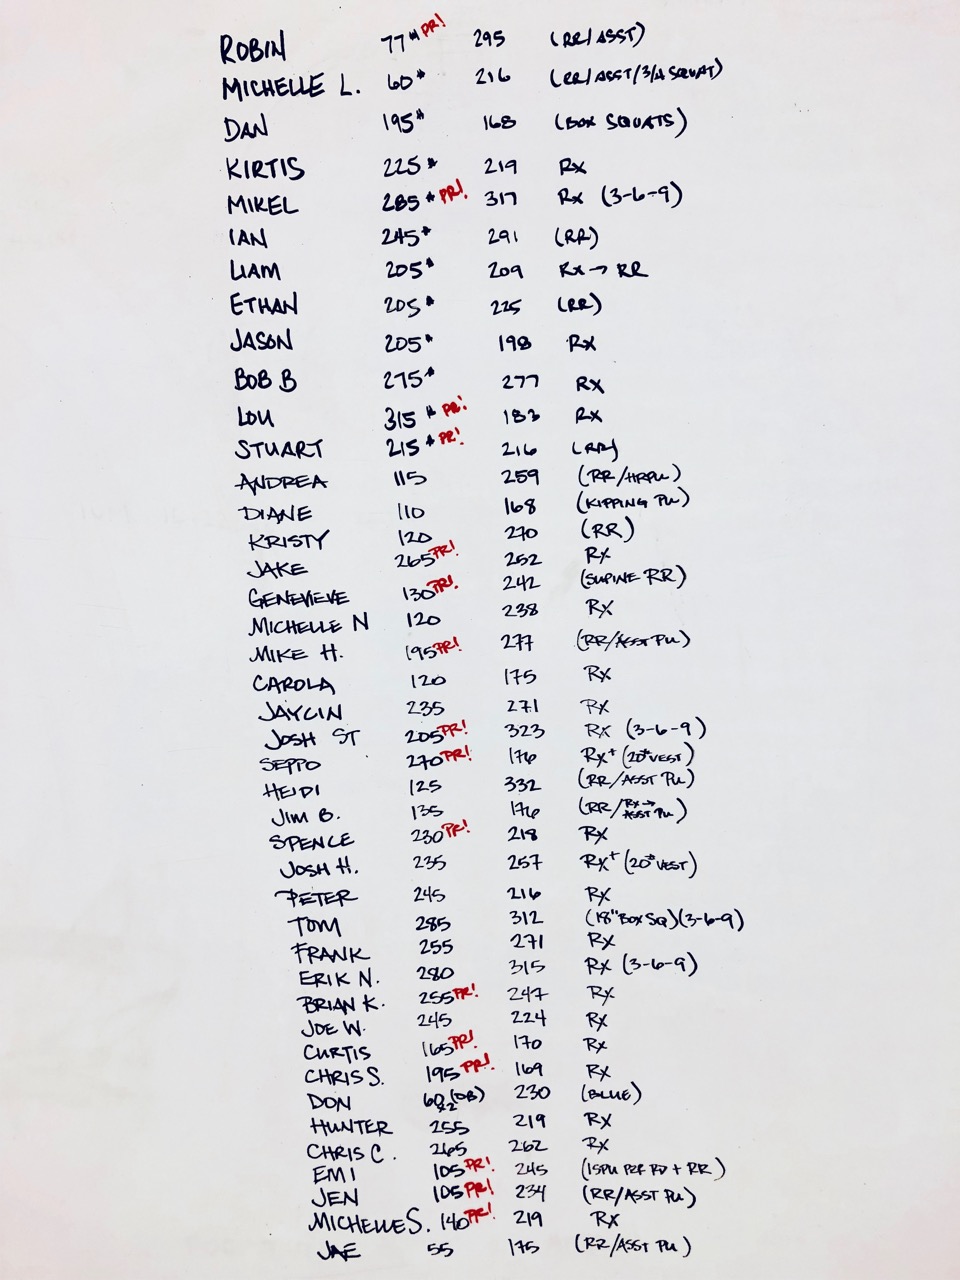 ROBIN 77# PR! 295 (RR/ASST)
MICHELLE L. 60# 216 (RR/ASST/3/4 SQUAT)
DAN 195# 168 (BOX SQUATS)
KIRTIS 225# 219 Rx
MIKEL 285# PR! 317 Rx (3-6-9)
IAN 245# 291 (RR)
LIAM 205# 209 Rx→RR
ETHAN 205# 225 (RR)
JASON 205# 198 Rx
BOB B 275# 277 Rx
LOU 315# PR! 183 Rx
STUART 215# PR! 216 (RR)
ANDREA 115 259 (RR/HRPU)
DIANE 110 168 (KIPPING PU)
KRISTY 120 270 (RR)
JAKE 265 PR! 252 Rx
GENEVIEVE 130 PR! 242 (SUPINE RR)
MICHELLE N 120 238 Rx
MIKE H. 195 PR! 277 (RR/ASST PU)
CAROLA 120 175 Rx
JAYCIN 235 271 Rx
JOSH ST 205 PR! 323 Rx (3-6-9)
SEPPO 270 PR! 176 Rx+ (20# VEST)
HEIDI 125 332 (RR/ASST PU)
JIM B. 135 176 (RR/Rx→ ASST PU)
SPENCE 230 PR! 218 Rx
JOSH H. 235 257 Rx+ (20# VEST)
PETER 245 216 Rx
TOM 285 312 (18" BOX SQ)(3-6-9)
FRANK 255 271 Rx
ERIK N. 280 315 Rx (3-6-9)
BRIAN K. 255 PR! 247 Rx
JOE W. 245 224 Rx
CURTIS 165 PR! 170 Rx
CHRIS S. 195 PR! 169 Rx
DON 60 (DB) x2 230 (BLUE)
HUNTER 255 219 Rx
CHRIS C. 265 262 Rx
EMI 105 PR! 245 (15PU PER RD + RR)
JEN 105 PR! 234 (RR/ASST PU)
MICHELLE S. 140 PR! 219 Rx
JAE 55 175 (RR/ASST PU)